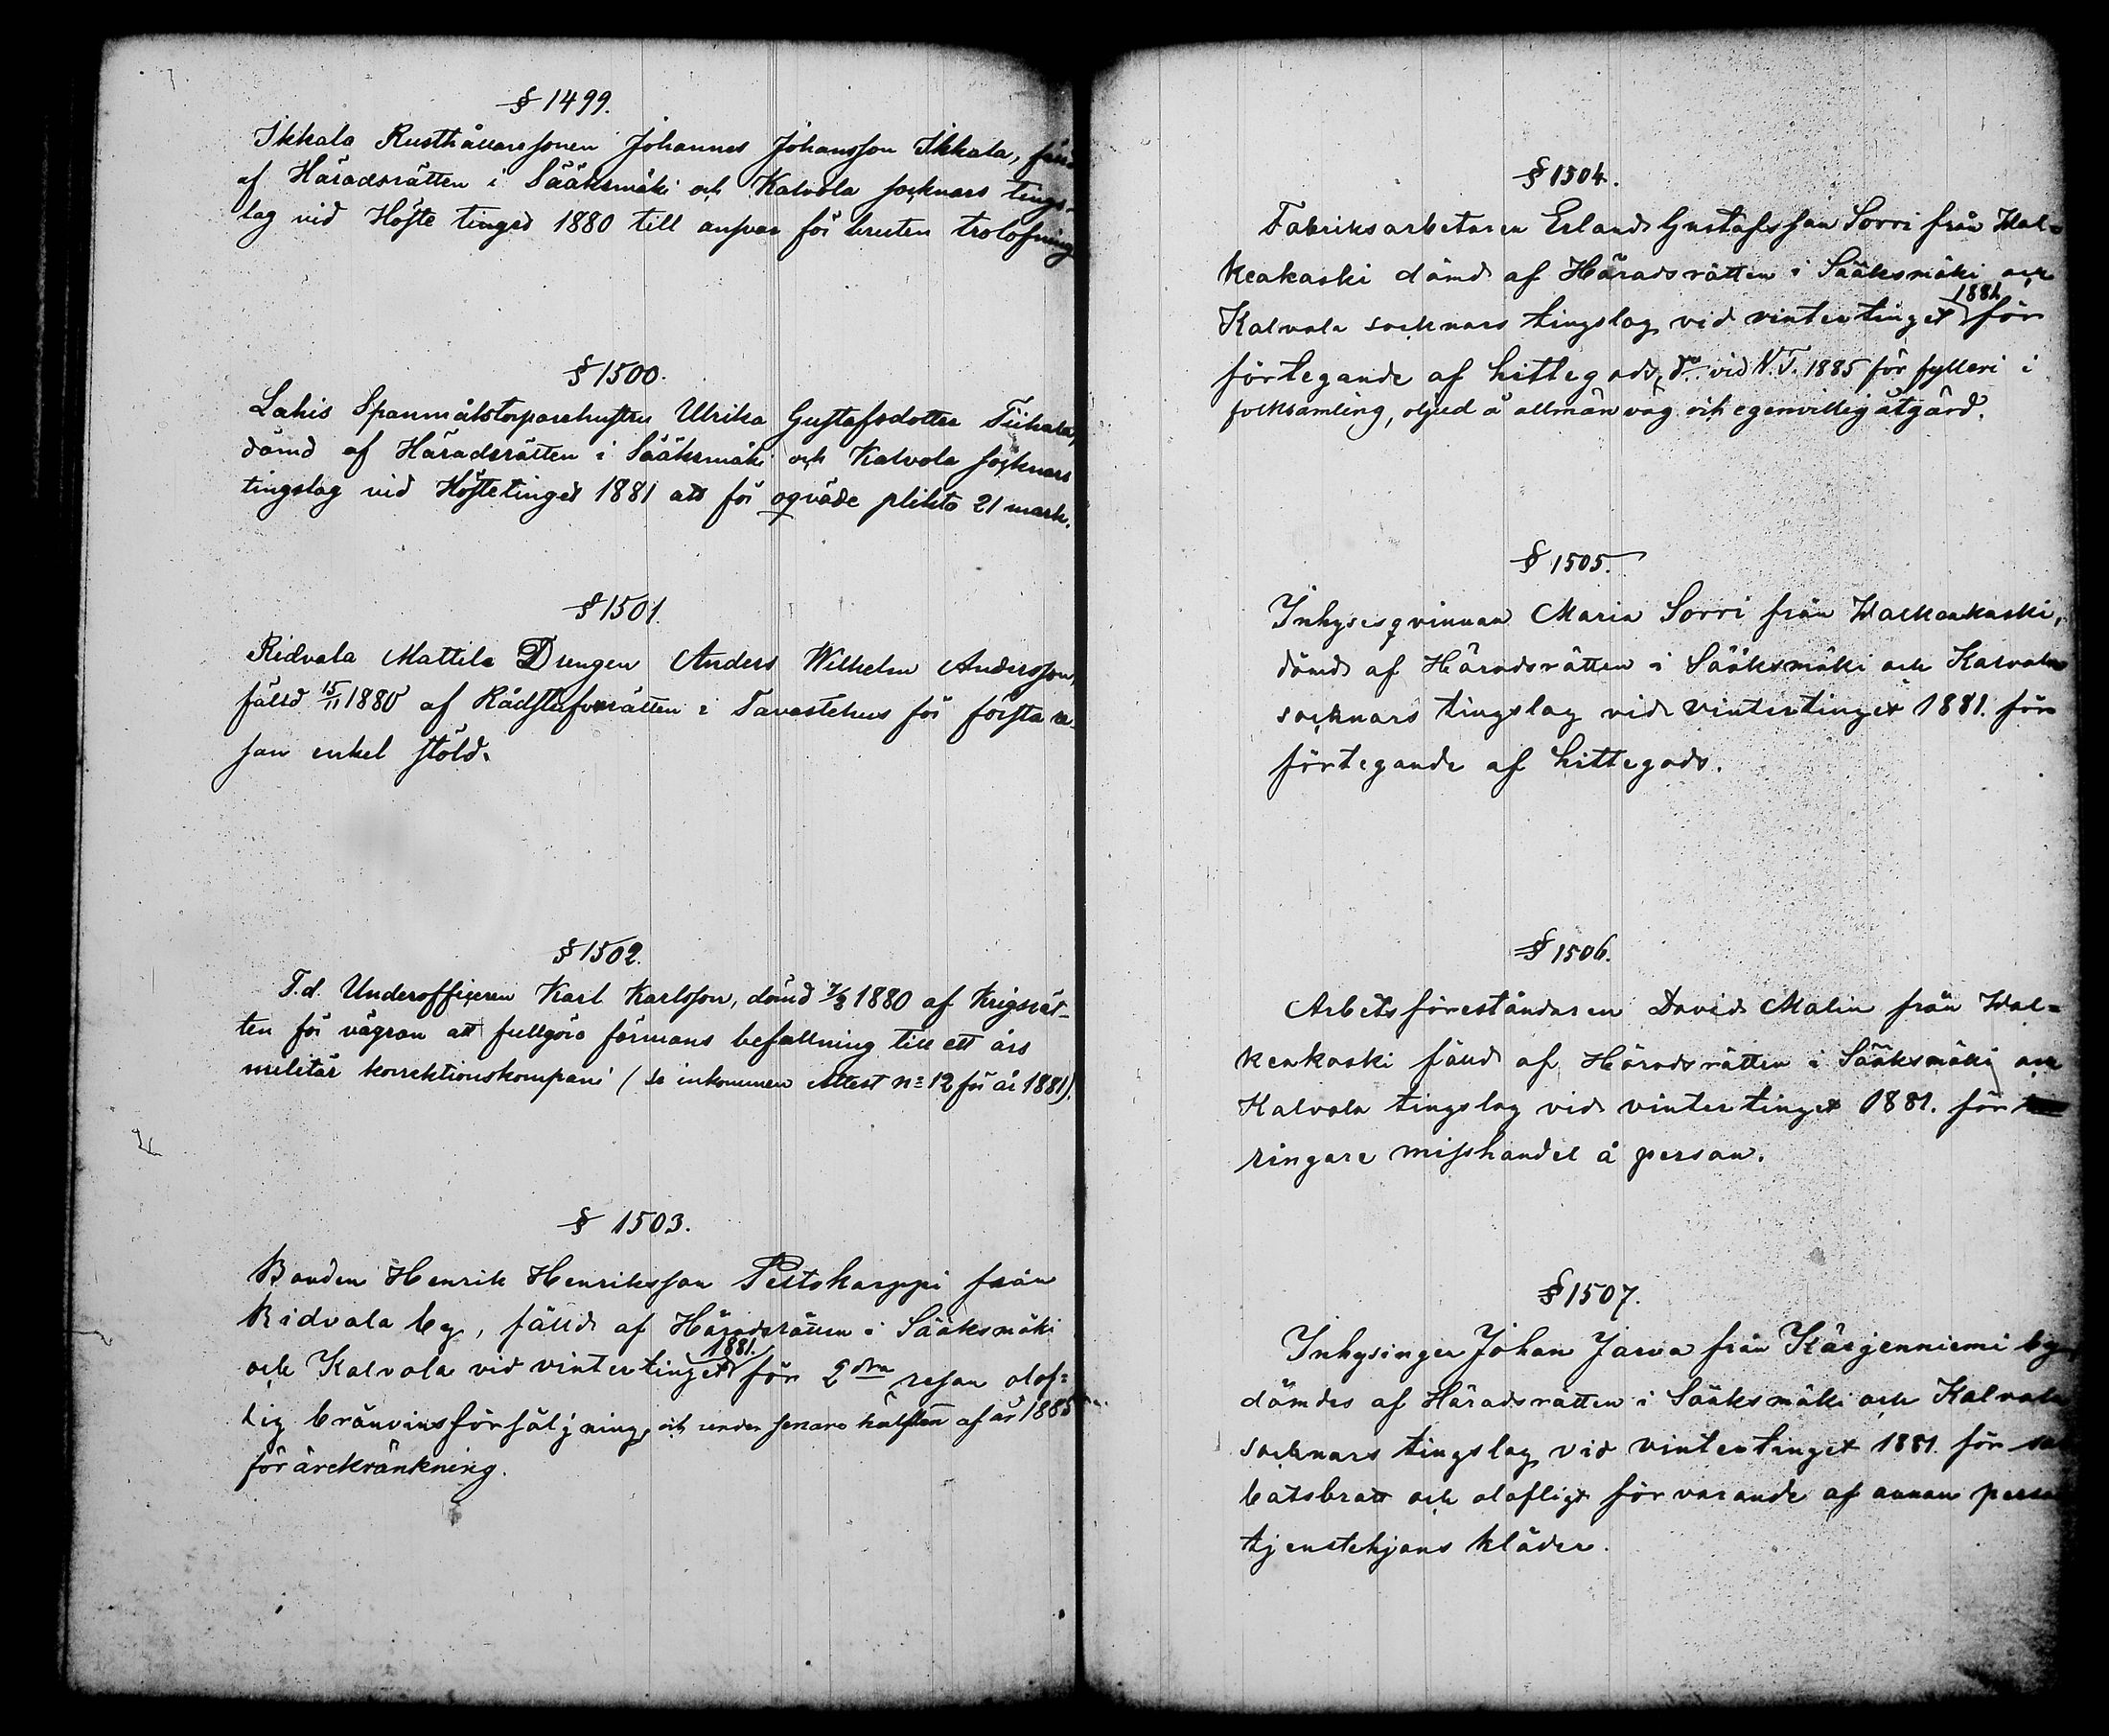 § 1499.
Ikkala Rusthållaresonen Johannes Johansson Ikkala, fälld
af Häradsrätten i Sääksmäki och Kalvola socknars tings-
lag vid Höste tinget 1880 till ansvar för bruten trolofning
§ 1500.
Lahis Spanmålstorparehustru Ulrika Gustafsdotter Tiihala,
dömd af Häradsrätten i Sääksmäki och Kalvola socknars
tingslag vid Höstetinget 1881 att för oqväde plikta 21 mark.
§ 1501.
Ridvala Mattila Drengen Anders Wilhelm Andersson,
fälld 15/11 1880 af Rådstufvurätten i Tavastehus för första re-
san enkel stöld.
§ 1502.
T.d. Underofficeren Karl Karlsson, dömd 7/2 1880 af Krigsrät-
ten för vägran att fullgöra förmans befallning till ett års
militär korrektionskompani (se inkommen attest n:o 12 för år 1881).
§ 1503.
Bonden Henrik Henriksson Peltokarppi från
Ridvala by, fälld af Häradsrätten i Sääksmäki
och Kalvola vid vintertinget 1881. för 2dra resan olof-
lig bränvinsförsäljning, och under senare hälften af år 1885
för ärekränkning.
§ 1504.
Fabriksarbetaren Erland Gustafsson Sorri från Wal-
keakoski dömd af Häradsrätten i Sääksmäki och
Kalvola socknars tingslag vid vintertinget 1881 för
förtegande af hittegods, d:o vid V.T. 1885 för fylleri i
folksamling, oljud å allmän väg och egenvillig åtgärd.
§ 1505.
Inhysesqvinnan Maria Sorri från Walkeakoski,
dömd af Häradsrätten i Sääksmäki och Kalvola
socknars tingslag vid vintertinget 1881. för
förtegande af hittegods.
§ 1506.
Arbetsföreståndaren David Malin från Wal-
keakoski fälld af Häradsrätten i Sääksmäki och
Kalvola tingslag vid vintertinget 1881. för
ringare misshandel å person.
§ 1507.
Inhysingen Johan Jarva från Kärjenniemi by
dömdes af Häradsrätten i Sääksmäki och Kalvola
socknars tingslag vid vintertinget 1881. för sab
batsbrott och olofligt förvarande af annan persons
tjenstehjons kläder.